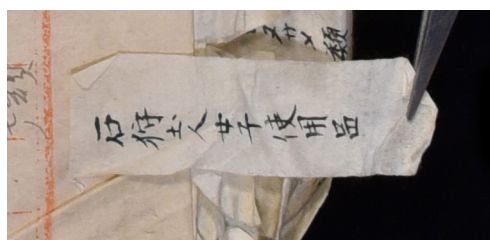 石狩土人女子使用品